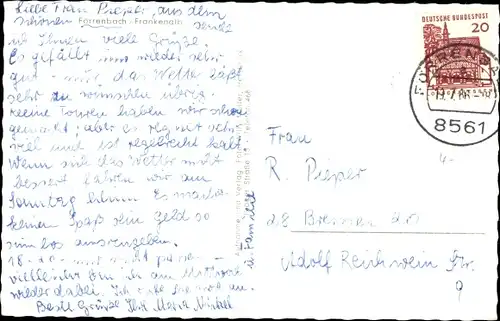 Liebe Frau Pieper, aus dem
schönen Förrenbach - Frankenalb
ich Ihnen viele Grüße.
Es gefällt uns wieder sehr
gut - nur das Wetter läßt
sehr zu wünschen übrig.
kleine Touren haben wir schon
gemacht; aber es regnet sehr
viel und ist regelrecht kalt.
Wenn sich das Wetter nicht
bessert fahren wir am
Sonntag heim. Es macht
keinen Spaß sein Geld so
sinnlos auszugeben.
vielleicht bin ich am Mittwoch
wieder dabei. Ich rufe Sie mal an.
Beste Grüße Ihre Maria
u. Familie
DEUTSCHE BUNDESPOST
20
FÖRRENBACH
8561
Frau
R. Pieper
28 Bremen 20
Adolf Reichwein Str.
9